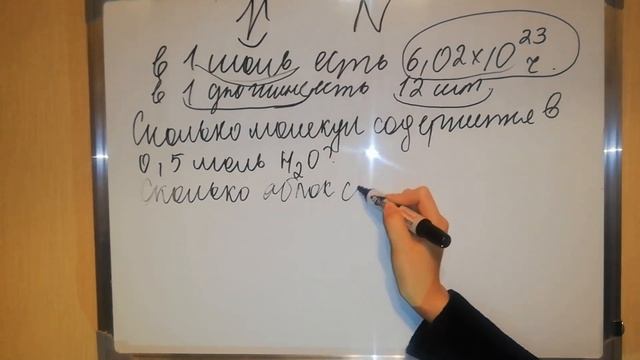 n N
в 1 моль есть 6,02×10²³ ч.
в 1 дюжине есть 12 шт.
Сколько молекул содержится в
0,5 моль H₂O?
Сколько яблок с